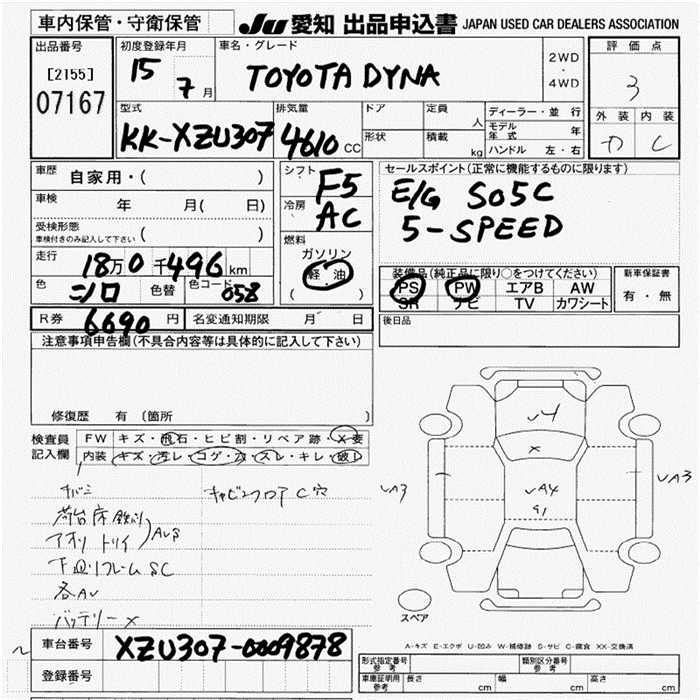 車内保管・守衛保管
JU 愛知 出品申込書 JAPAN USED CAR DEALERS ASSOCIATION
出品番号
[2155]
07167
初度登録年月
15 7月
車名・グレード
TOYOTA DYNA
2WD
・
4WD
評価点
3
外装 内装
D C
型式
KK-XZU307
排気量
4610 CC
ドア
形状
定員 人
積載 kg
ディーラー・並行
モデル年式 年
ハンドル 左・右
車歴 自家用・( )
車検 年 月( 日)
受検形態
車検付きのみ記入して下さい ( )
走行 18万0千496km
色 シロ 色替 色コード 058
シフト F5
冷房 AC
燃料
ガソリン
軽・油
( )
セールスポイント(正常に機能するものに限ります)
E/G S05C
5-SPEED
装備品(純正品に限り○をつけてください)
PS PW エアB AW
SR ナビ TV カワシート
新車保証書
有・無
R券 6690円 名変通知期限 月 日
後日品
注意事項申告欄(不具合内容等は具体的に記入して下さい)
修復歴 有 〔箇所
検査員記入欄
FW キズ・飛石・ヒビ割・リペア跡・X要
内装 キズ・汚レ・コゲ・穴・スレ・キレ・破レ
キャビンフロア C穴
荷台床鉄板
アオリ トリイ
AUS
下回りフレームSC
各AU
バッテリーX
U4
X
UA3
UA4
UA3
スペア
A-キズ E-エクボ U-凹み W-補修跡 S-サビ C-腐食 XX-交換済
車台番号 XZU307-0009878
登録番号
形式指定番号 参考
類別区分番号 参考
車庫証明用 参考 長さ cm 幅 cm 高さ cm